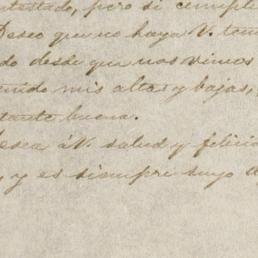 ntestado, pero si cumpli
Deseo que no haya V. teni
do desde que nos vimos
enido mis altas y bajas,
tante buena.
desea á V. salud y felici
, y es siempre suyo af